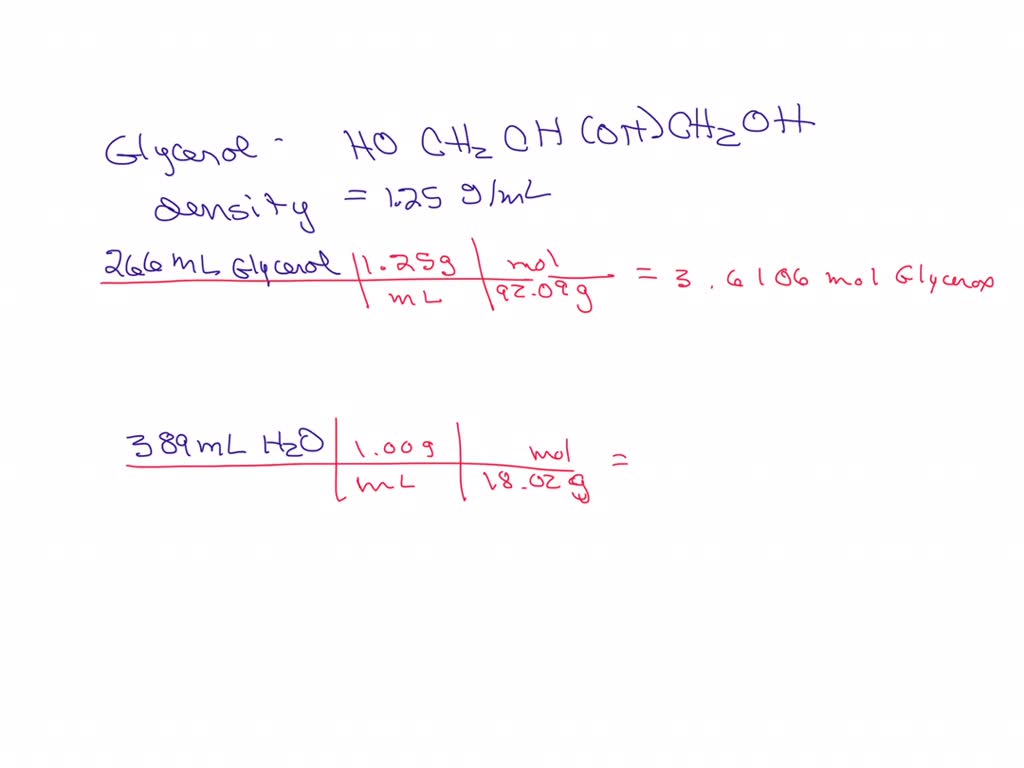 Glycerol - HO CH₂ CH (OH) CH₂ OH
density = 1.25 g/mL
266 mL Glycerol | 1.25g | mol = 3.6106 mol Glycerol
mL | 92.09g
389 mL H₂O | 1.00g | mol =
mL | 18.02g